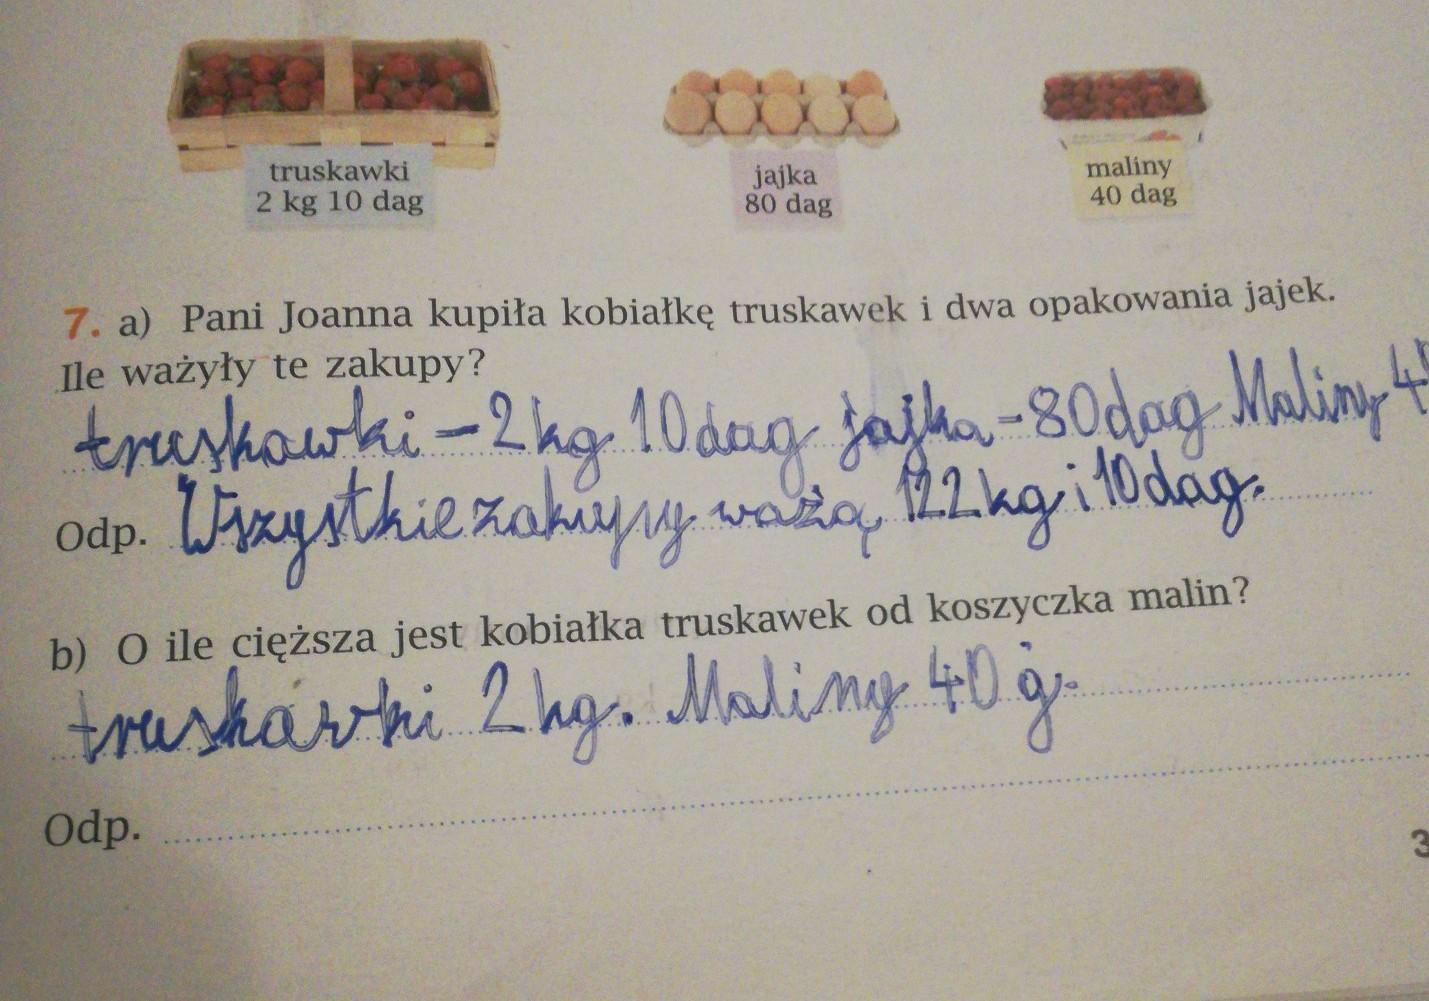 truskawki
2 kg 10 dag
jajka
80 dag
maliny
40 dag
7. a) Pani Joanna kupiła kobiałkę truskawek i dwa opakowania jajek.
Ile ważyły te zakupy?
truskawki - 2 kg 10 dag jajka - 80 dag Maliny 4
Odp. Wszystkie zakupy ważą 122 kg i 10 dag.
b) O ile cięższa jest kobiałka truskawek od koszyczka malin?
truskawki 2 kg. Maliny 40 g.
Odp.
3